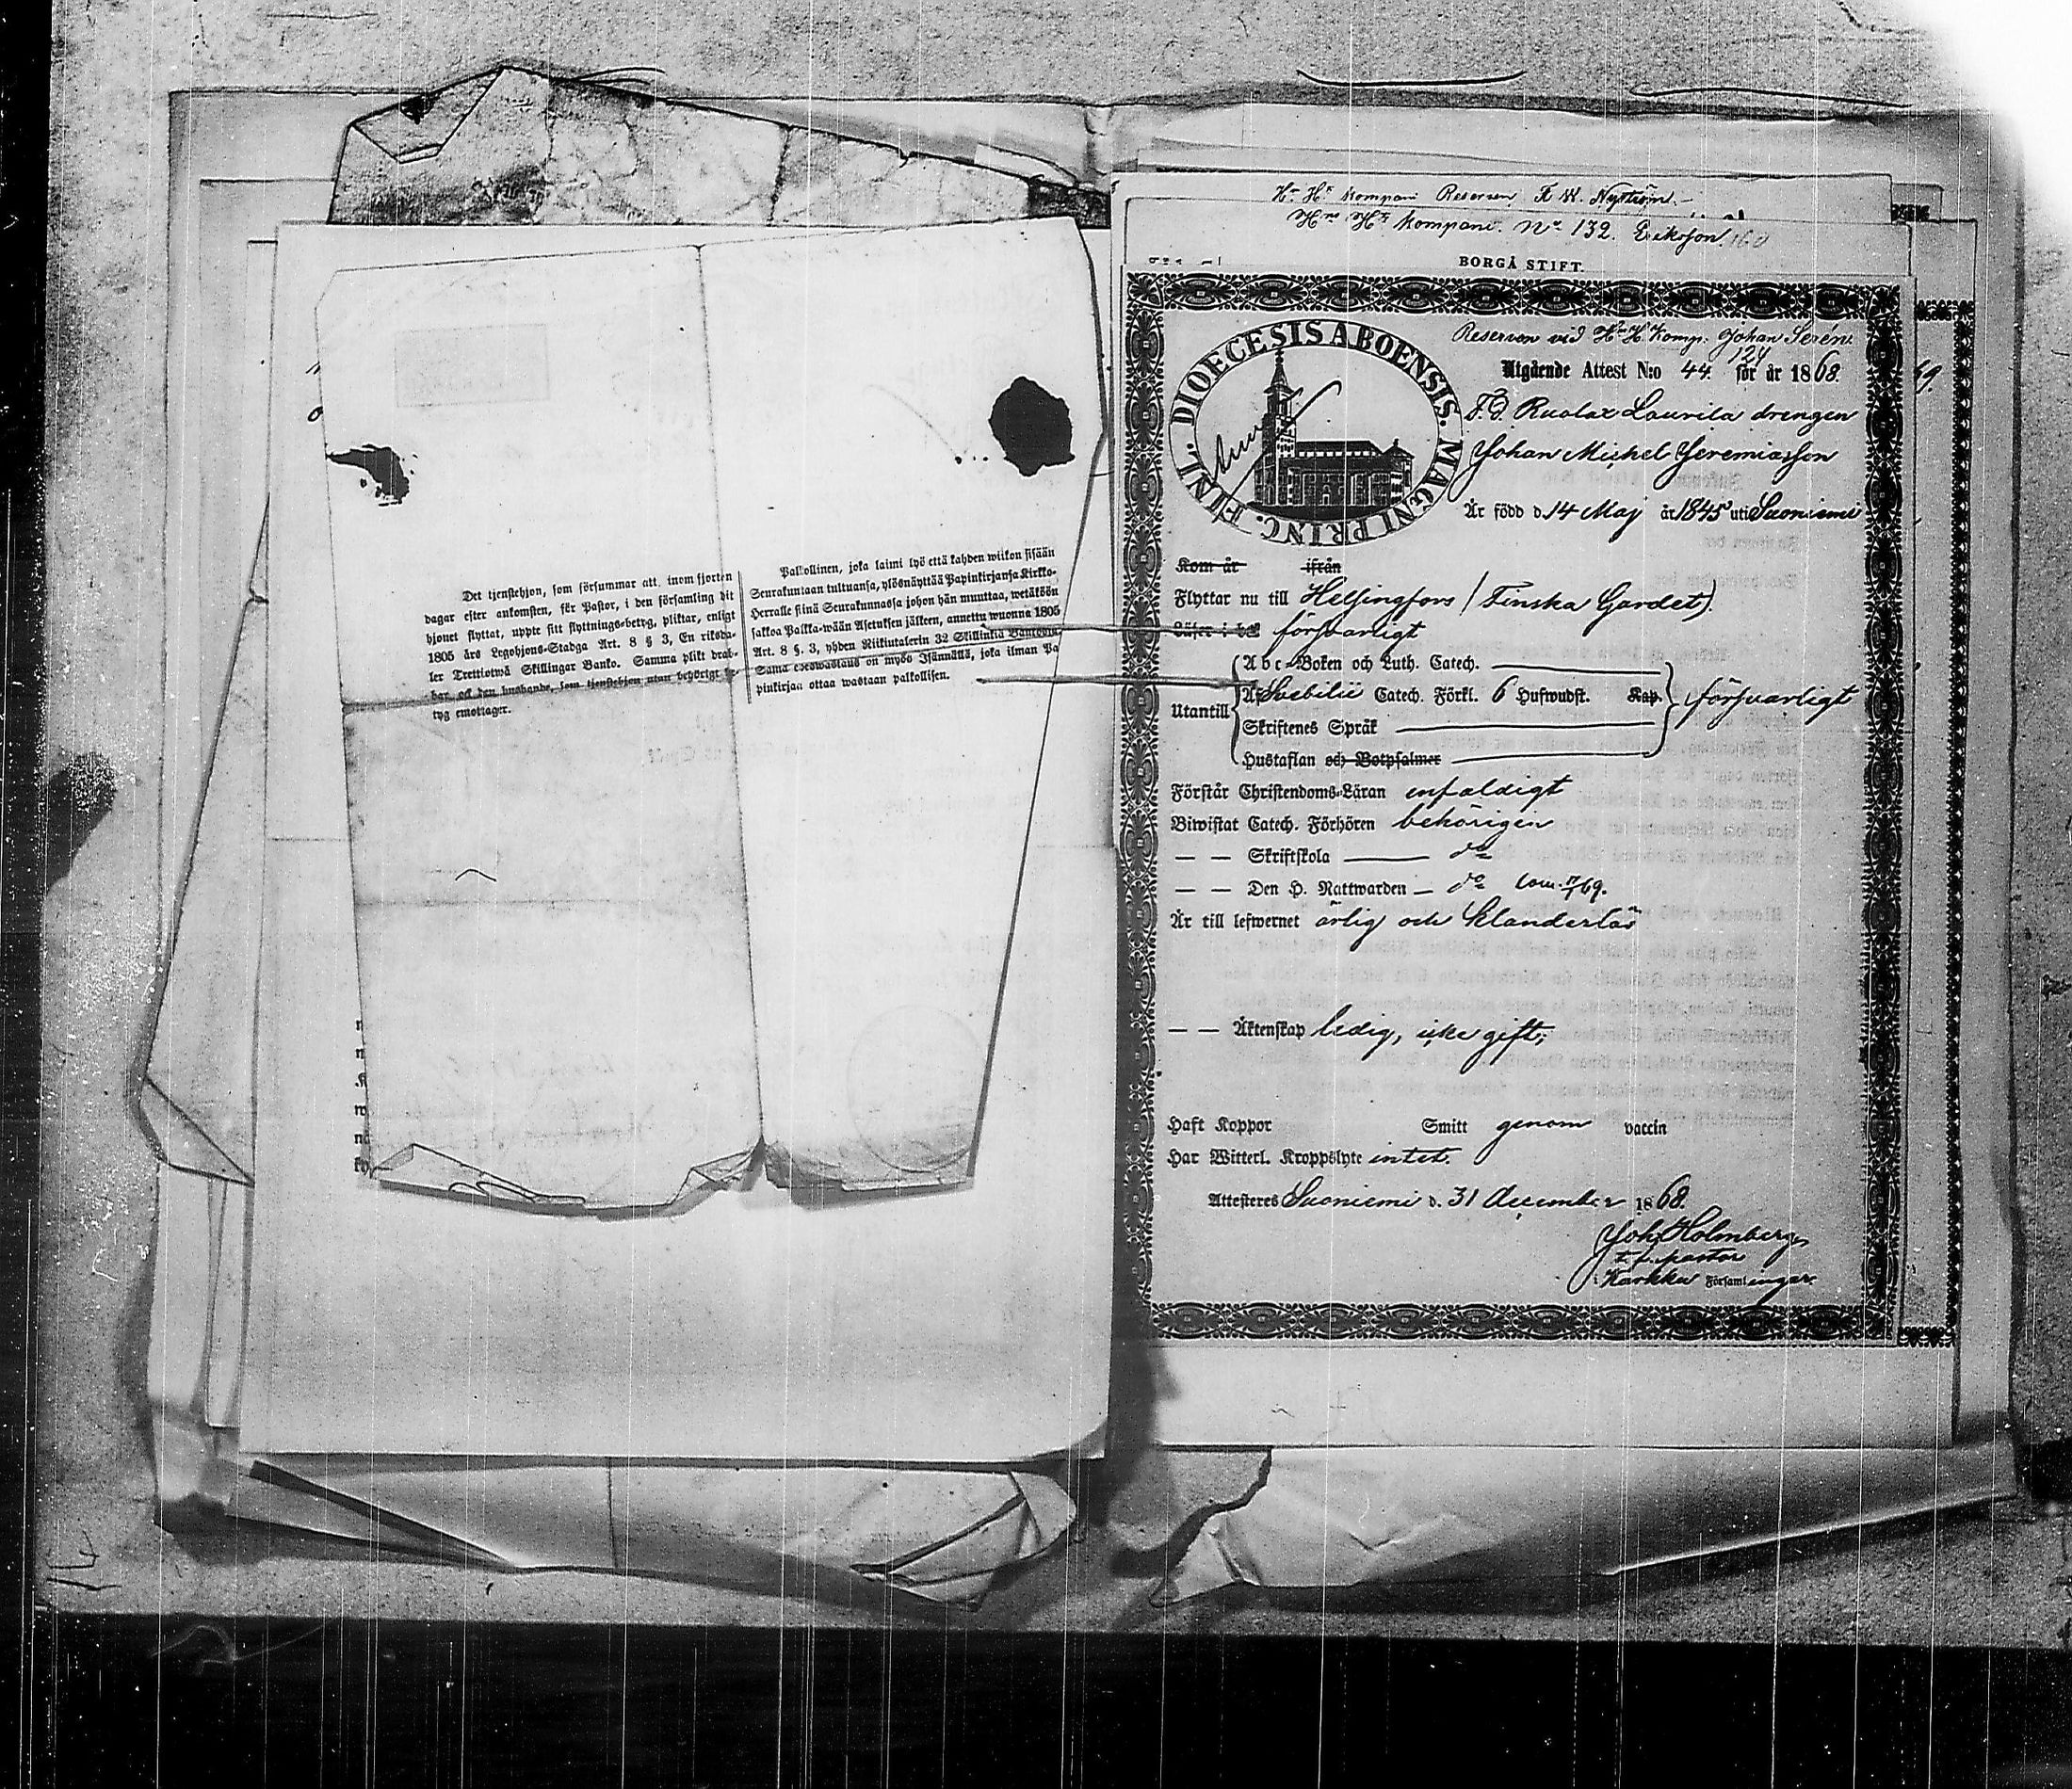 Det tjenstehjon, som försummar att, inom fjorton
dagar efter ankomsten, för Pastor, i den församling dit
hjonet flyttat, uppte sitt flyttnings-betyg, pliktar, enligt
1805 års Legohjons-Stadga Art. 8 § 3, En riksda-
ler Trettiotwå Skillingar Banko. Samma plikt drab-
bar ock den husbonde, som tjenstehjon utan behörigt be-
tyg emottager.
Palkollinen, joka laimi lyö että kahden wiikon sisään
Seurakuntaan tultuansa, ylösnäyttää Papinkirjansa Kirkko-
Herralle siinä Seurakunnassa johon hän muuttaa, wetäköön
sakkoa Palkka-wään Asetuksen jälkeen, annettu wuonna 1805
Art. 8 §. 3, yhden Riikintalerin 32 Skillinkiä Bankossa.
Sama edeswastaus on myös Isännällä, joka ilman Pa
pinkirjaa ottaa wastaan palkollisen.
Hr Hs Kompani Reserven F. W. Nyström.
Hrn Hs Kompani. No 132. Erikson
BORGÅ STIFT.
DIOECESIS ABOENSIS. MAGNI PRINC. FINL.
Reserven vid Hr H Komp. Johan Serén
124
Utgående Attest N:o 44. för år 1868.
F.d. Ruolax Laurila drengen
Johan Michel Jeremiasson
Är född d. 14 Maj år 1845 uti Suoniemi
Kom år ifrån
Flyttar nu till Helsingfors (Finska Gardet).
Läser i bok försvarligt
Abc-Boken och Luth. Catech.
Utantill Svebilii Catech. Förkl. 6 Hufwudst. Kap. försvarligt
Skriftenes Språk
Hustaflan och Botpsalmer
Förstår Christendoms-Läran enfaldigt
Biwistat Catech. Förhören behörigen
— — Skriftskola do
— — Den H. Nattwarden — do
Är till lefwernet ärlig och klanderlös
— — Äktenskap ledig, icke gift;
Haft Koppor Smitt genom vaccin
Har Witterl. Kroppslyte intet.
Attesteres Suoniemi d. 31 december 1868.
Joh. Holmberg
t. f. pastor
Karkku Församlingar.